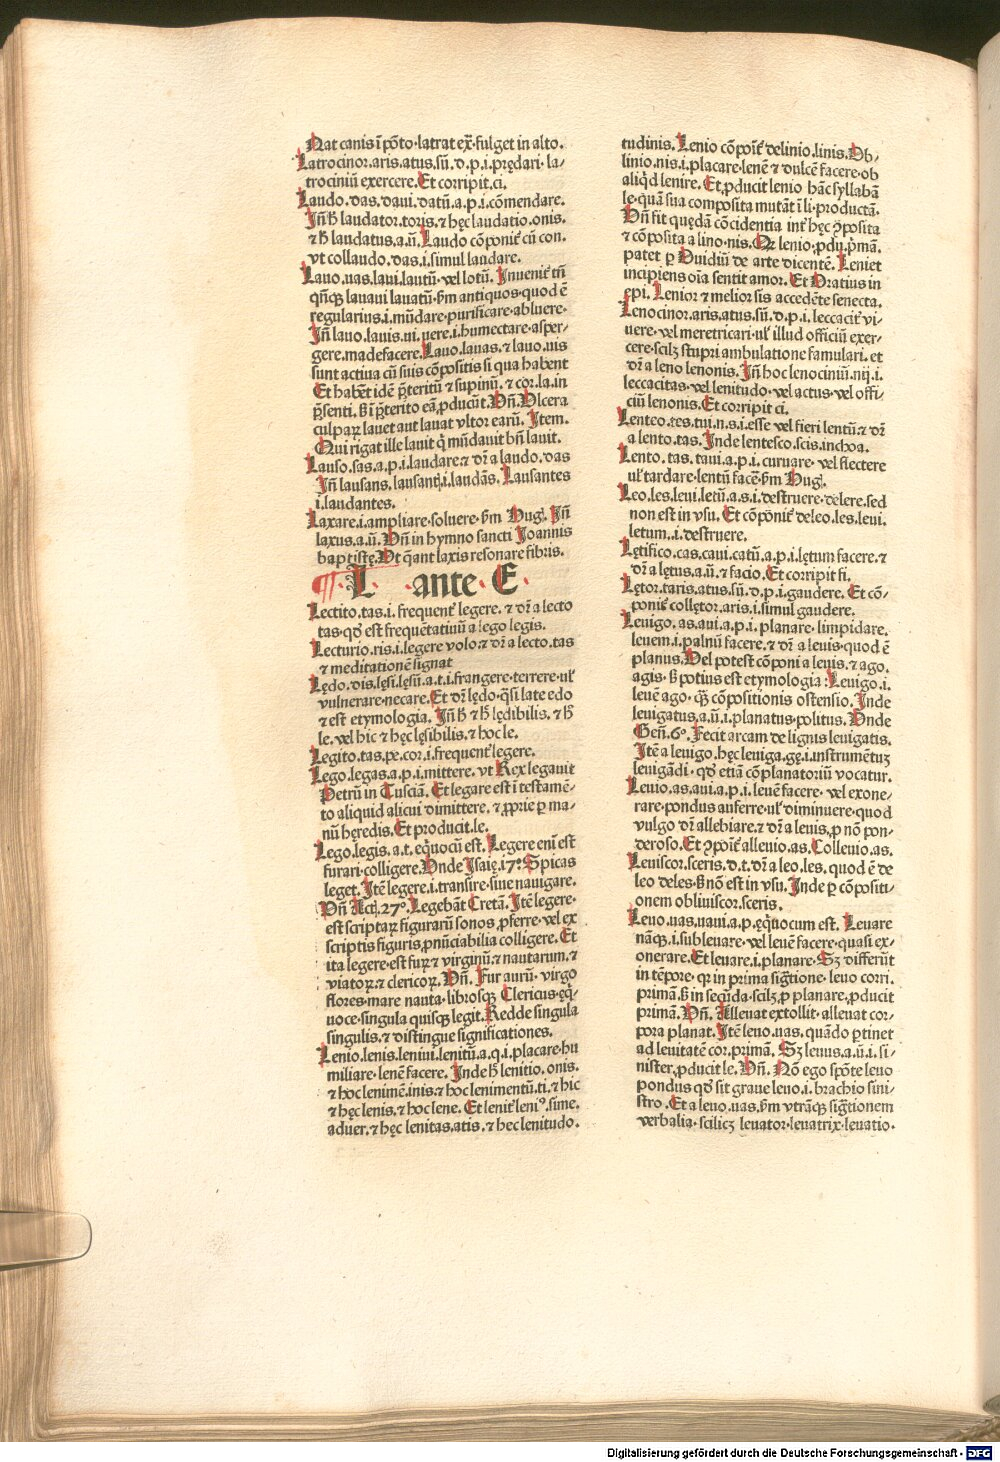 Nat canis ī pōto·latrat ex̄·fulget in alto.
Latrocinor.aris.atus.sū.d.p.i.prędari·la-
trociniū exercere.Et corripit.ci.
Laudo.das.daui.datū.a.p.i.cōmendare.
Jn̄ h̄ laudator.toris.⁊ hęc laudatio.onis.
⁊ h̄ laudatus.a.ū.Laudo cōponit̄ cū con.
vt collaudo.das.i.simul laudare.
Lauo.uas.laui.lautū·vel lotū.Jnuenit̄ tn̄
qn̄qꝫ lauaui lauatū·ẜm antiquos·quod ē
regularius.i.mūdare·purificare·abluere·
Jn̄ lauo.lauis.ui.uere.i.humectare·asper-
gere.madefacere.Lauo.lauas.⁊ lauo.uis
sunt actiua cū suis cōpositis si qua habent
Et habēt idē p̄teritū ⁊ supinū.⁊ cor.la.in
p̄senti.ß i p̄terito eā ꝓducūt.Vn̄.Vlcera
culpaꝝ lauet aut lauat vltor earū.Jtem.
Qui rigat ille lauit q̇ mūdauit bn̄ lauit.
Lauso.sas.a.p.i.laudare.⁊ dr̄ a laudo.das
Jn̄ lausans.lausant̄.i.laudās.Lausantes
i.laudantes.
Laxare.i.ampliare·soluere·ẜm Hug̛.Jn̄
laxus.a.ū.Vn̄ in hymno sancti Joannis
baptistę.Vt q̄ant laxis resonare fibris.
¶ L ante E
Lectito.tas.i.frequent̄ legere.⁊ dr̄ a lecto
tas·qd̄ est frequētatiuū a lego legis.
Lecturio.ris.i.legere volo·⁊ dr̄ a lecto.tas
⁊ meditationē signat
Lędo.dis.lęsi.lęsū.a.t.i.frangere·terrere·ul̄
vulnerare·necare.Et dr̄ lędo·q̄si late edo
⁊ est etymologia.Jn̄ h̄ ⁊ h̄ lędibilis.⁊ h̄
le.vel hic ⁊ hęc lęsibilis.⁊ hoc le.
Legito.tas.pe.cor.i.frequent̄ legere.
Lego.legas.a.p.i.mittere.vt Rex legauit
Petrū in Tusciā.Et legare est i testamē-
to aliquid alicui dimittere.⁊ ꝓprie ꝑ ma-
nū hęredis.Et producit.le.
Lego.legis.a.t.eq̇uocū est.Legere eni est
furari·colligere.Vnde Jsaię.17º.Spicas
leget.Jtē legere.i.transire·siue nauigare.
Vn̄ Act̛.27º.Legebāt Cretā.Jtē legere·
est scriptaꝝ figurarū sonos ꝓferre·vel ex
scriptis figuris ꝓnūciabilia colligere.Et
ita legere·est fuꝝ ⁊ virginū.⁊ nautarum.⁊
viatoꝝ.⁊ clericoꝝ.Vn̄.Fur aurū·virgo
flores·mare nauta·librosqꝫ Clericus·ęq̇-
uoce·singula quisqꝫ legit.Redde singula
singulis.⁊ distingue significationes.
Lenio.lenis.leniui.lenitū.a.q.i.placare·hu
miliare·lenē facere.Jnde h̄ lenitio.onis.
⁊ hoc lenimē.inis.⁊ hoc lenimentū.ti.⁊ hic
⁊ hęc lenis.⁊ hoc lene.Et lenit̄ leniꝰ.sime.
aduer.⁊ hęc lenitas.atis.⁊ hec lenitudo.
tudinis.Lenio cōpōit̄ delinio.linis.Ob-
linio.nis.i.placare·lenē ⁊ dulcē facere·ob
aliqd̄ lenire.Et ꝓducit lenio hāc syllabā
le·quā sua composita mutāt i li·productā.
Vn̄ fit quędā cōcidentia int̄ hęc ꝯposita
⁊ cōposita a lino·nis.Qꝛ lenio·ꝓdu.p̄mā.
patet ꝑ Ouidiū de arte dicentē.Leniet
incipiens oīa sentit amor.Et Oratius in
ępi.Lenior ⁊ melior sis accedēte senecta.
Lenocinor.aris.atus.sū.d.p.i.leccacit̄ vi-
uere·vel meretricari·ul̄ illud officiū exer-
cere·scilꝫ stupri ambulatione famulari.et
dr̄ a leno lenonis.Jn̄ hoc lenociniū.nij.i.
leccacitas·vel lenitudo·vel actus·vel offi-
ciū lenonis.Et corripit ci.
Lenteo.tes.tui.n.s.i.esse vel fieri lentū.⁊ dr̄
a lento.tas.Jnde lentesco.scis.inchoa.
Lento.tas.taui.a.p.i.curuare·vel flectere
ul̄ tardare·lentū facē·ẜm Hug̛.
Leo.les.leui.letū.a.s.i.destruere·delere.sed
non est in vsu.Et cōponit̄ deleo.les.leui.
letum.i.destruere.
Lętifico.cas.caui.catū.a.p.i.lętum facere.⁊
dr̄ a lętus.a.ū.⁊ facio.Et corripit fi.
Lętor.taris.atus.sū.d.p.i.gaudere.Et cō-
ponit̄ collętor.aris.i.simul gaudere.
Leuigo.as.aui.a.p.i.planare·limpidare.
leuem.i.palnū facere.⁊ dr̄ a leuis·quod ē
planus.Vel potest cōponi a leuis.⁊ ago.
agis·ß potius est etymologia:Leuigo.i.
leuē ago·qꝫ cōpositionis ostensio.Jnde
leuigatus.a.ū.i.planatus·politus.Vnde
Gen̄.6º.Fecit arcam de lignis leuigatis.
Jtē a leuigo.hęc leuiga.gę.i.instrumētuꝫ
leuigādi·qd̄ etiā cōplanatoriū vocatur.
Leuio.as.aui.a.p.i.leuē facere·vel exone-
rare·pondus auferre·ul̄ diminuere·quod
vulgo dr̄ allebiare.⁊ dr̄ a leuis·ꝓ nō pon-
deroso.Et ꝯpōit̄ alleuio.as.Colleuio.as.
Leuiscor.sceris.d.t.dr̄ a leo.les.quod ē de
leo deles·ß nō est in vsu.Jnde ꝑ cōpositi-
onem obliuiscor.sceris.
Leuo.uas.uaui.a.p.ęq̇uocum est.Leuare
nāqꝫ.i.subleuare·vel leuē facere·quasi ex-
onerare.Et leuare.i.planare.Sꝫ differūt
in tēpore·qꝛ in prima sig̅tione·leuo corri.
primā.ß in secūda·scilꝫ ꝓ planare·ꝓducit
primā.Vn̄.Alleuat extollit·alleuat cor-
pora planat.Jtē leuo.uas.quādo ꝑtinet
ad leuitatē cor.primā.Sꝫ leuus.a.ū.i.si-
nister·ꝓducit le.Vn̄.Nō ego spōte leuo
pondus qd̄ sit graue leuo.i.brachio sini-
stro.Et a leuo.uas.ẜm vtrāqꝫ sig̅tionem
verbalia·scilicꝫ leuator·leuatrix·leuatio·
Digitalisierung gefördert durch die Deutsche Forschungsgemeinschaft - DFG